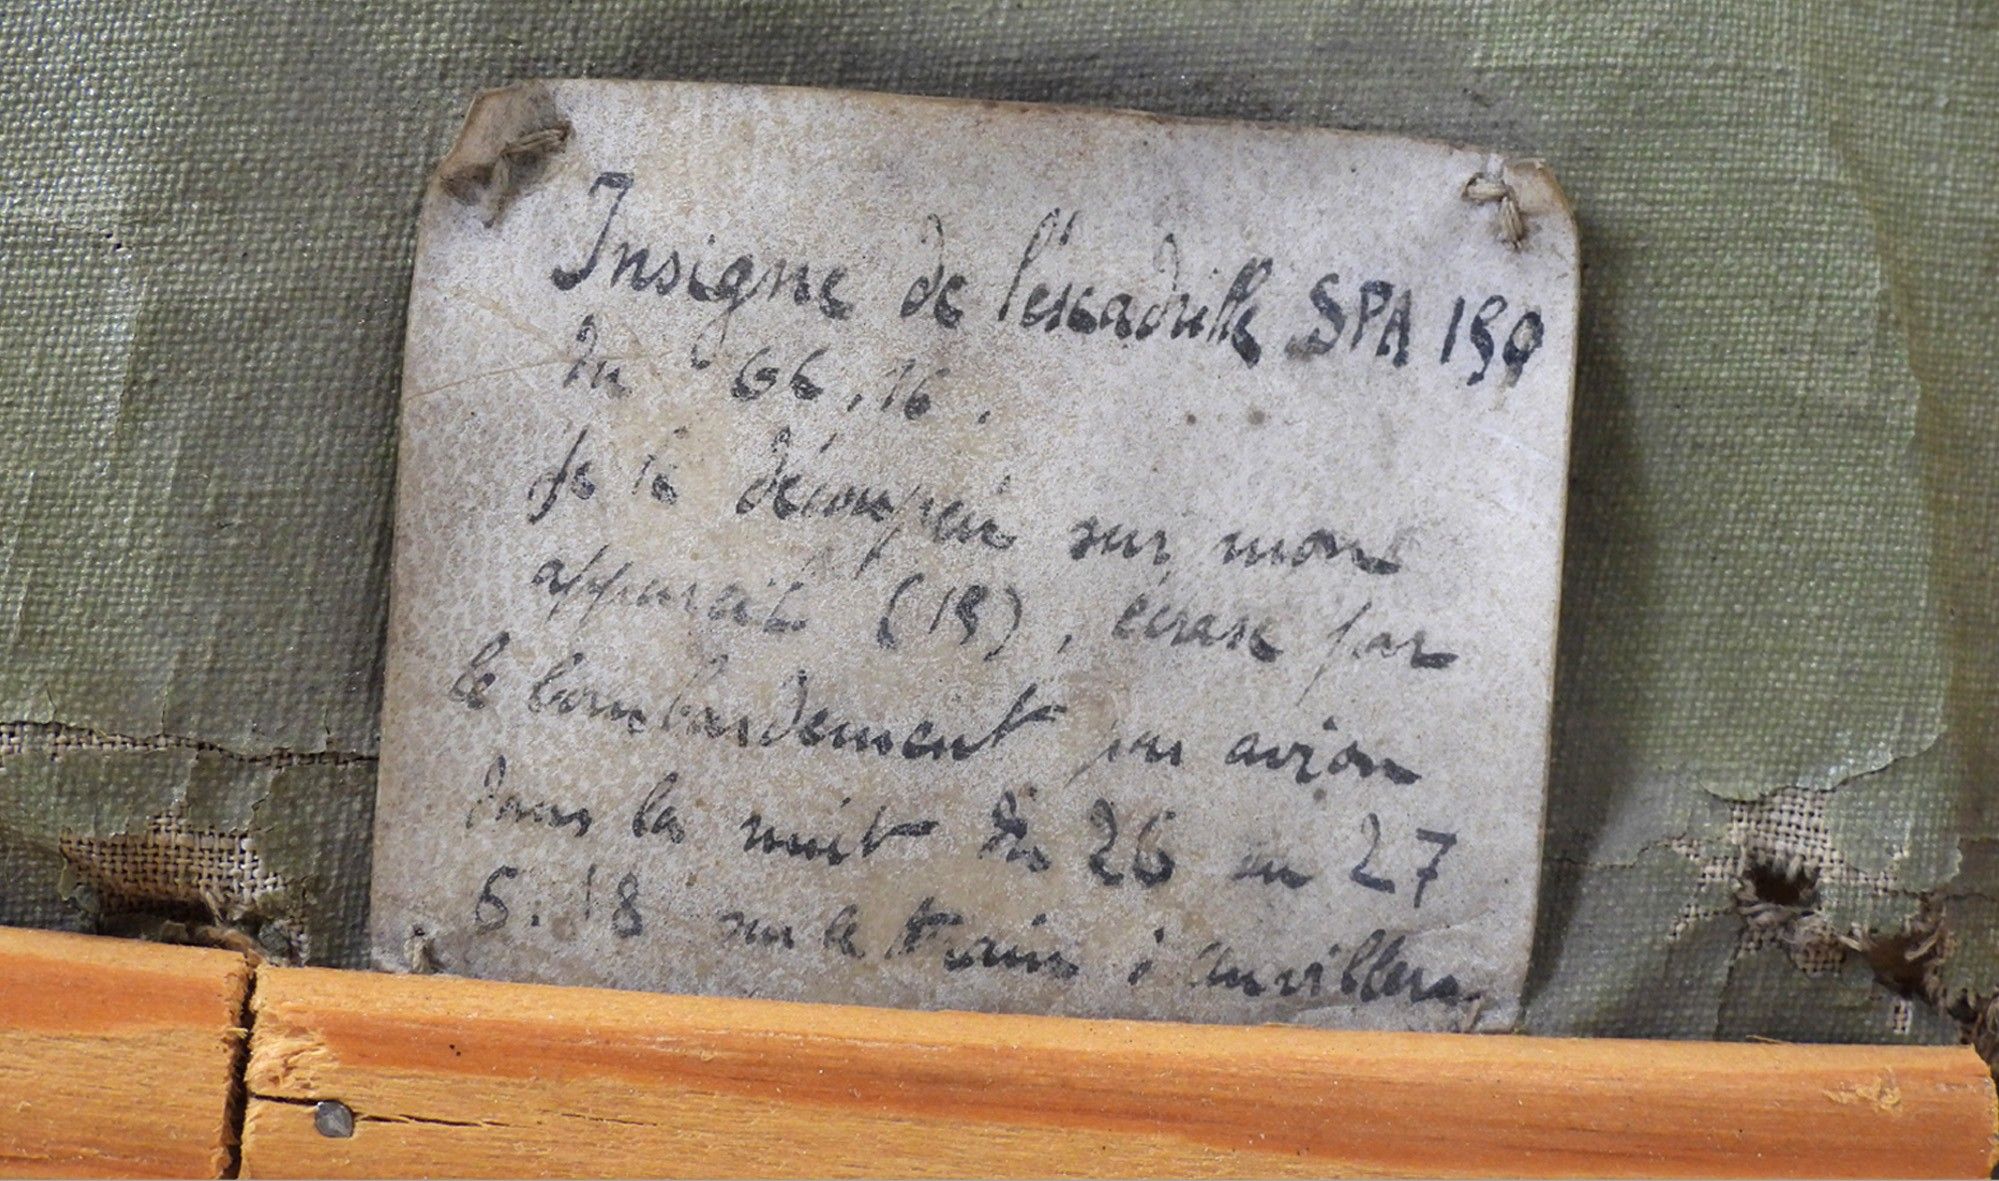 Insigne de l'escadrille SPA 150
du GC, 16.
Je le découpai sur mon
appareil (15), écrasé par
le bombardement par avion
dans la nuit du 26 au 27
5. 18 sur le train à